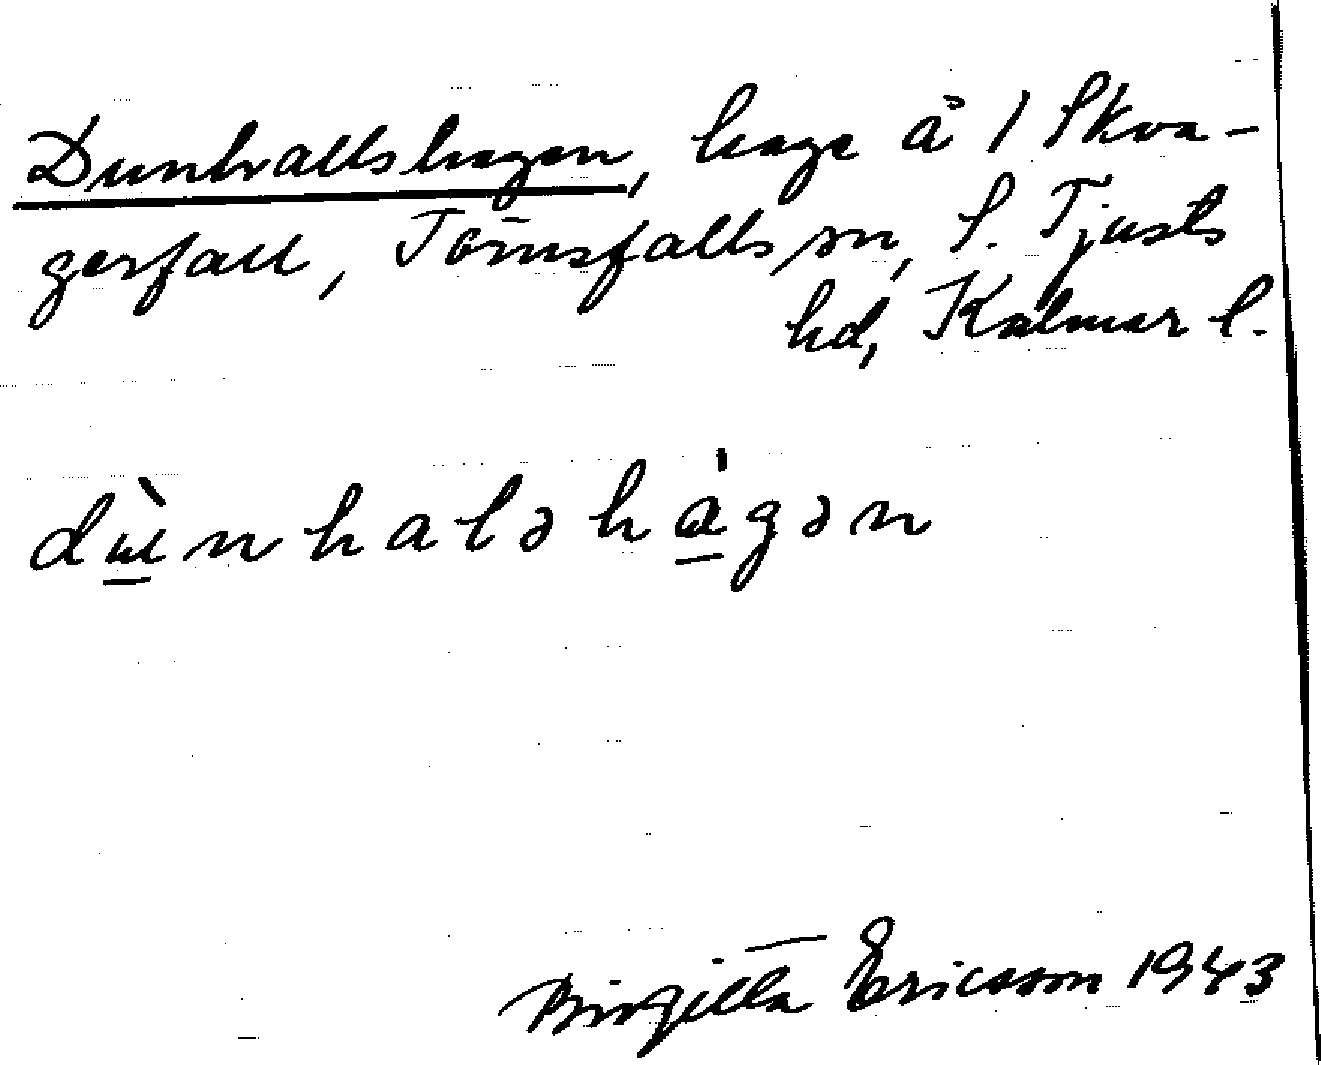 Dunhallshagen, hage å 1 Skva-
gerfall, Törnsfalls sn, S. Tjusts
hd, Kalmar l.
dùnhaləhágən
Birgitta Ericsson 1943